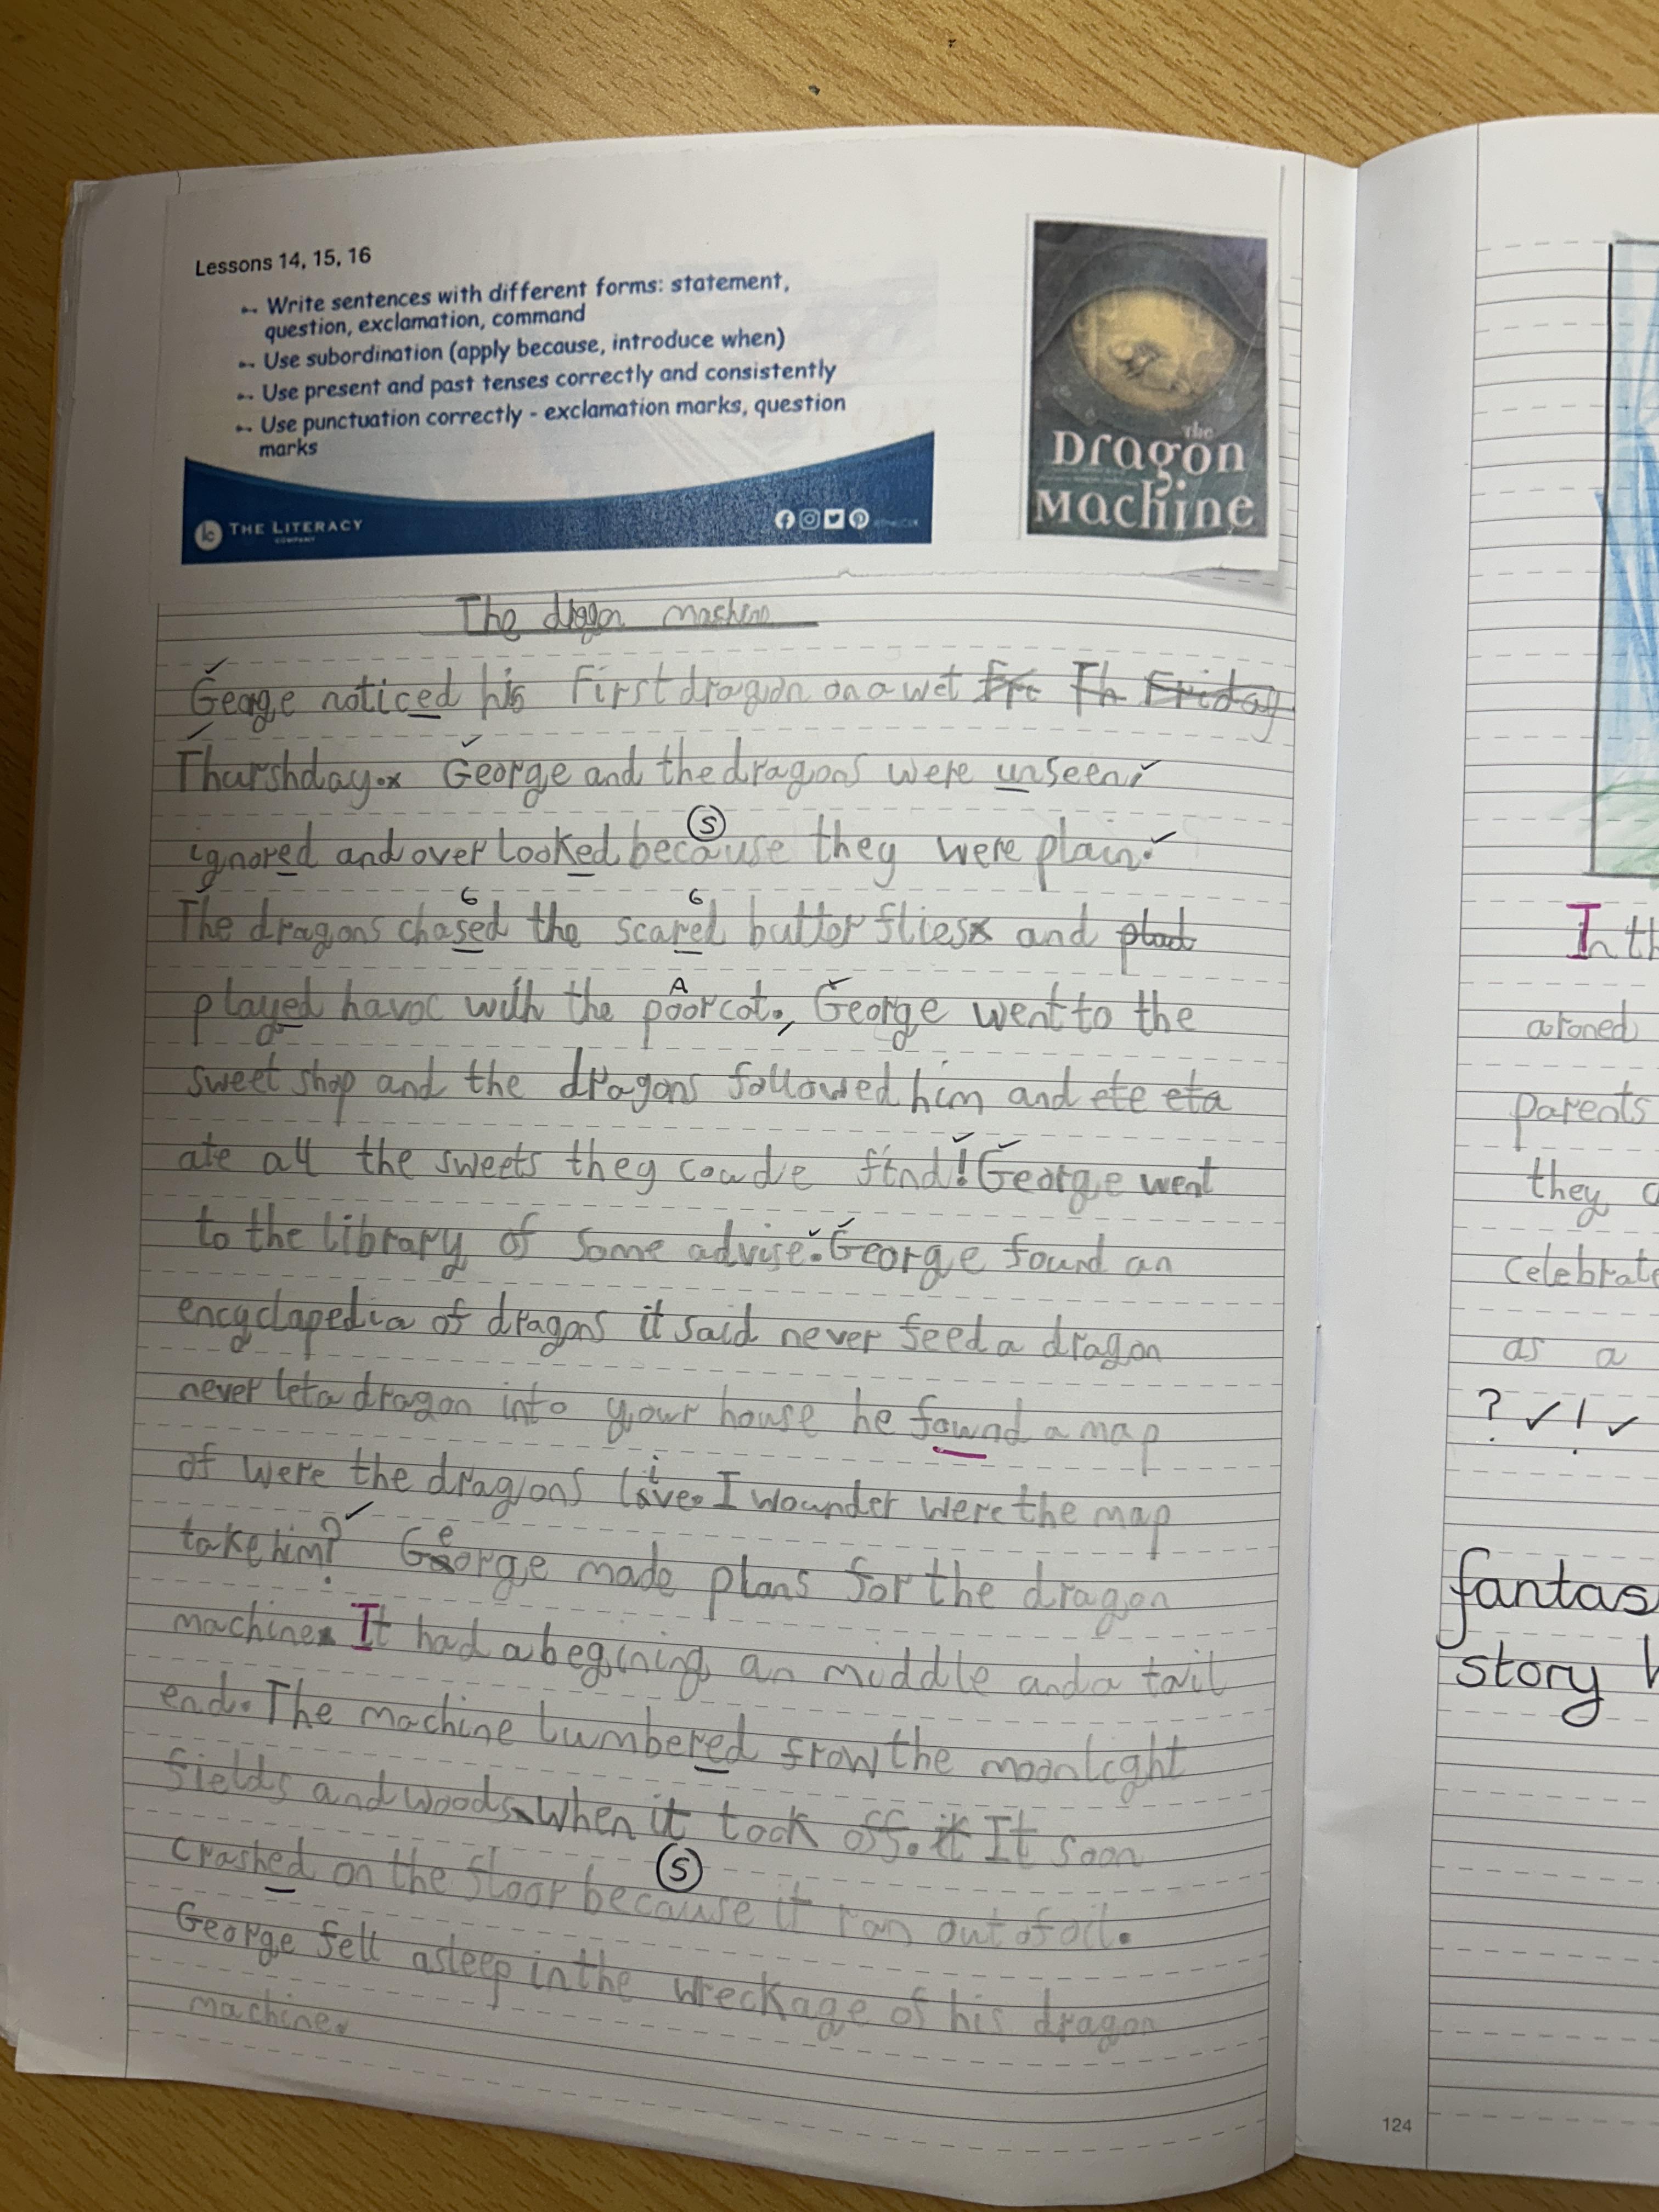 Lessons 14, 15, 16
Write sentences with different forms: statement,
question, exclamation, command
Use subordination (apply because, introduce when)
Use present and past tenses correctly and consistently
Use punctuation correctly - exclamation marks, question
marks
THE LITERACY
COMPANY
the
Dragon
Machine
The dragon machine
George noticed his first dragon on a wet Fri Th Friday
Thurshday. George and the dragons were unseen,
ignored and over looked because they were plain.
S
The dragons chased the scared butter flies and plad
6 6
played havoc with the poor cat., George went to the
A
sweet shop and the dragons followed him and ete eta
ate all the sweets they coude find! George went
to the library of some advise. George found an
encyclapedia of dragons it said never feed a dragon
never let a dragon into your house he fownd a map
of were the dragons live. I wounder were the map
take him? George made plans for the dragon
machine. It had a begining an middle and a tail
end. The machine lumbered frow the moonlight
fields and woods when it took off. it It soon
crashed on the floor because it ran out of oil.
S
George fell asleep in the wreckage of his dragon
machine.
In th
aroned
parents
they
celebrate
as a
? ✓ ! ✓
fantas
story
124